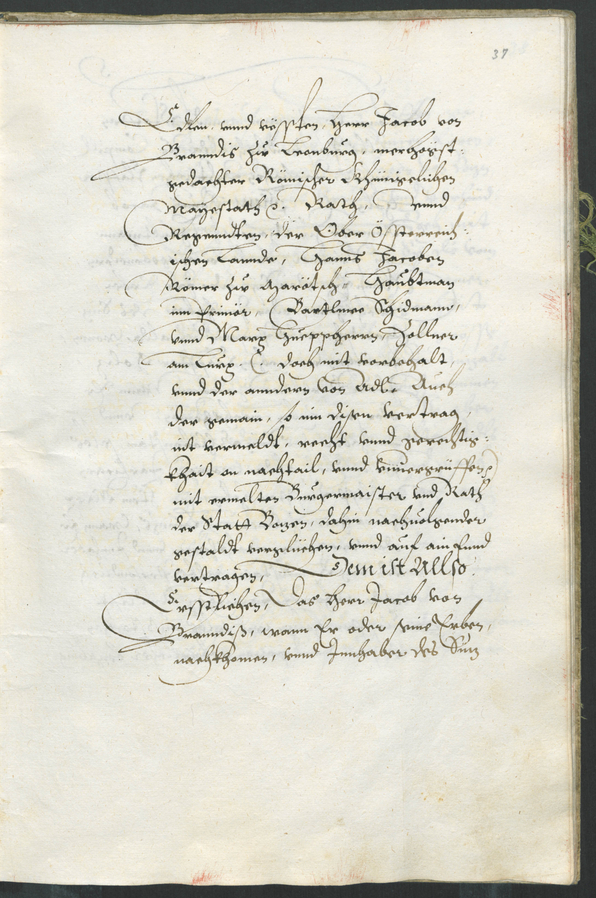 37
Edlen vnnd vessten, Herr Jacob von
Branndis zw Leonburg, merhöchst
gedachter Römischer Khünigclichen
Mayestath etc. Rath, vnnd
Regenndten, der Ober Össterreich-
ischen Lannde, Hanns Jacoben
Römer zw Maretsch, Haubtman
im Primör, Bartlmee Schidmann,
vnnd Marx Zueppherrn, Zollner
am Lueg etc. doch mit vorbehalt,
vnnd der anndern von Adl, Auch
der gemain, so inn disen vertrag,
nit vermeldt, recht vnnd gerechtig-
khait on nachtail, vnnd vnuergriffen,
mit ermelten Burgermaister vnd Rath
der Statt Bozen, dahin nachuolgender
gestaldt verglichen, vnnd auf ain Ennd
vertragen, Dem ist Allso.
Erstlichen, Das Herr Jacob von
Branndiß, wann Er oder seine Erben,
nachkhomen, vnnd Innhaber des